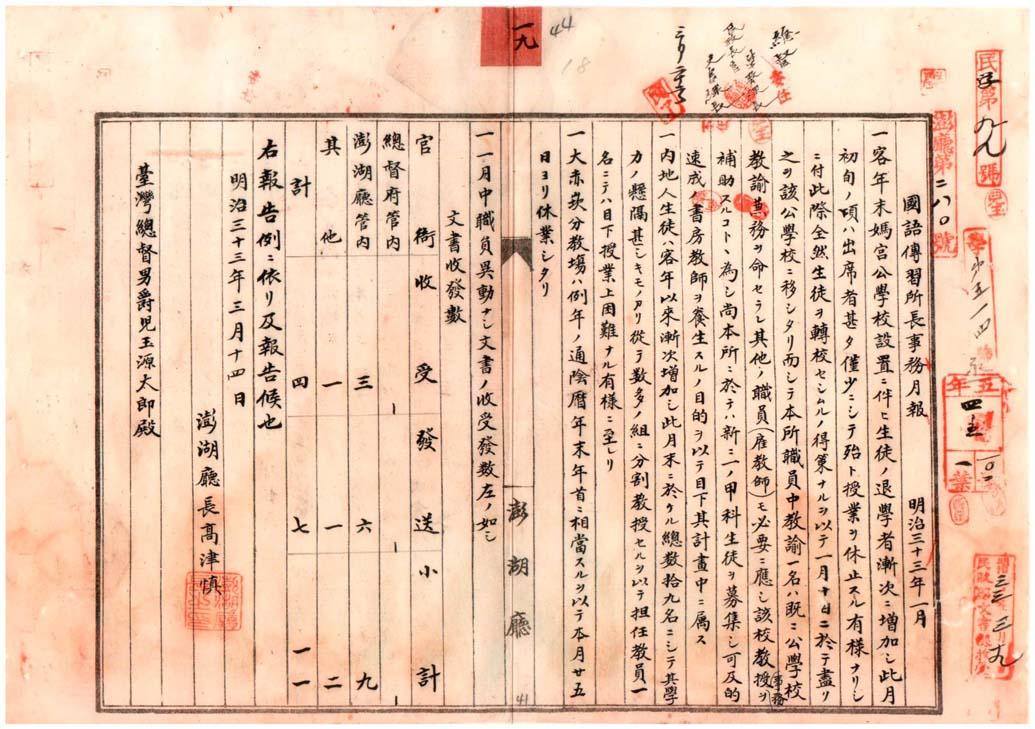 國語傳習所長事務月報　明治三十三年一月
一客年末媽宮公學校設置ニ件ヒ生徒ノ退學者漸次ニ增加シ此月
初旬ノ頃ハ出席者甚タ僅少ニシテ殆ト授業ヲ休止スル有様ナリシ
ニ付此際全然生徒ヲ轉校セシムルノ得策ナルヲ以テ一月十日ニ於テ盡リ
之ヲ該公學校ニ移シタリ而シテ本所職員中教諭一名ハ既ニ公學校
教諭兼務ヲ命セラレ其他ノ職員(雇教師)モ必要ニ應シ該校教授事務ヲ
補助スルコトヽ為シ尚本所ニ於テハ新ニ一ノ甲科生徒ヲ募集シ可及的
速成ノ書房教師ヲ養生スルノ目的ヲ以テ目下其計畫中ニ属ス
一內地人生徒ハ客年以來漸次增加シ此月末ニ於ケル總數拾九名ニシテ其學
力ノ懸隔甚シキモノアリ從テ数多ノ組ニ分割教授セルヲ以テ担任教員一
名ニテハ目下授業上困難ナル有様ニ至レリ
一大赤崁分教場ハ例年ノ通陰曆年末年首ニ相當スルヲ以テ本月廿五
日ヨリ休業シタリ
一一月中職員異動ナシ文書ノ收受發数左ノ如シ
文書收發數
官衙　收受　發送　小計
總督府管內　一　一
澎湖廳管內　三　六　九
其他　一　一　二
計　四　七　一一
右報告例ニ依リ及報告候也
明治三十三年三月十四日
澎湖廳長高津慎
臺灣總督男爵兒玉源太郎殿
澎湖廳
41
一九
44
18
澎廳第二八〇號